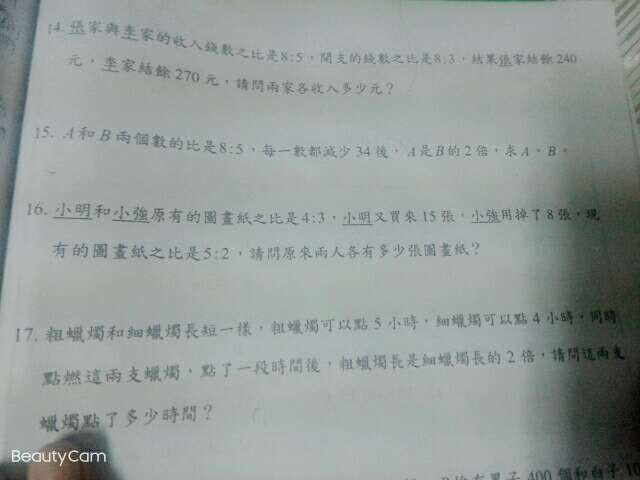 14. 張家與李家的收入錢數之比是8:5，開支的錢數之比是8:3，結果張家結餘240
元，李家結餘270元，請問兩家各收入多少元？
15. A和B兩個數的比是8:5，每一數都減少34後，A是B的2倍，求A、B。
16. 小明和小強原有的圖畫紙之比是4:3，小明又買來15張，小強用掉了8張，現
有的圖畫紙之比是5:2，請問原來兩人各有多少張圖畫紙？
17. 粗蠟燭和細蠟燭長短一樣，粗蠟燭可以點5小時，細蠟燭可以點4小時，同時
點燃這兩支蠟燭，點了一段時間後，粗蠟燭長是細蠟燭長的2倍，請問這兩支
蠟燭點了多少時間？
400個和白子
BeautyCam